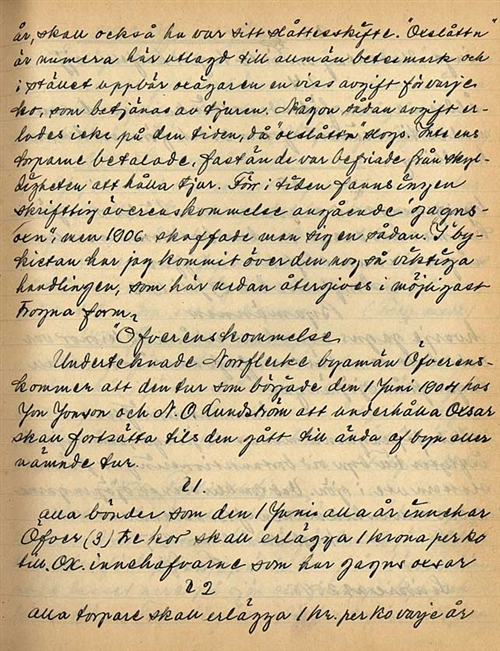 år, skall också ha var sitt slåttesskifte. "Oxslåttn"
är numera här utlagd till allmän betesmark och
i stället uppbär oxägaren en viss avgift för varje
ko, som betjänas av tjuren. Någon sådan avgift er-
lades icke på den tiden, då "oxslåttn" slogs. Inte ens
torparne betalade, fastän de var befriade från skyl-
digheten att hålla tjur. Förr i tiden fanns ingen
skriftlig överenskommelse angående "gagns-
oxn", men 1906 skaffade man sig en sådan. I by-
kistan har jag kommit över den nog så viktiga
handlingen, som här nedan återgives i möjligast
trogna form.
"Öfverenskommelse
Undertecknade Norrflerke byamän Öfverens-
kommer att den tur som började den 1 Juni 1904 hos
Jon Jonson och N. O. Lundström att underhålla Oxsar
skall fortsätta tils den gått till ända af byn eller
nämnde tur.
§1.
alla bönder som den 1 Junis alla år innehar
Öfver (3) tre kor skall erlägga 1 krona per ko
till. Ox. innehafvarne som har gagns oxsar
§2
alla torpare skall erlägga 1 kr. per ko varje år